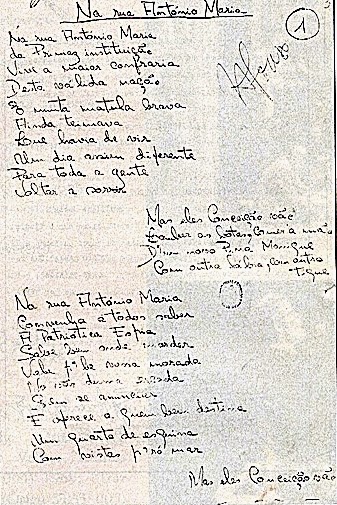 Na rua António Maria
1
Na rua António Maria
da Primaz instituição
Vive a maior confraria
Desta válida nação
E muita matula brava
Ainda teimava
Que havia de vir
Um dia assim diferente
Para toda a gente
Voltar a sorrir
Mas eles Conceição vão
lamber as botas, comer à mão
D'um novo Pina Manique
Com outra lábia, com outro
tique
Na rua António Maria
Convenha a todos saber
A Patriótica Espia
Sabe bem onde morder
Vela p'la nossa morada
sem se anunciar
E oferece a quem bem destina
Um quarto de esquina
Com vistas p'ró mar
Mas eles Conceição vão